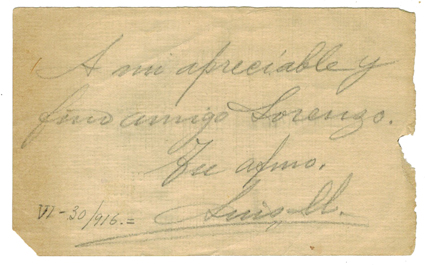 A mi apreciable y
fino amigo Lorenzo.
Tu afmo.
Luis M.
VI-30/916.=